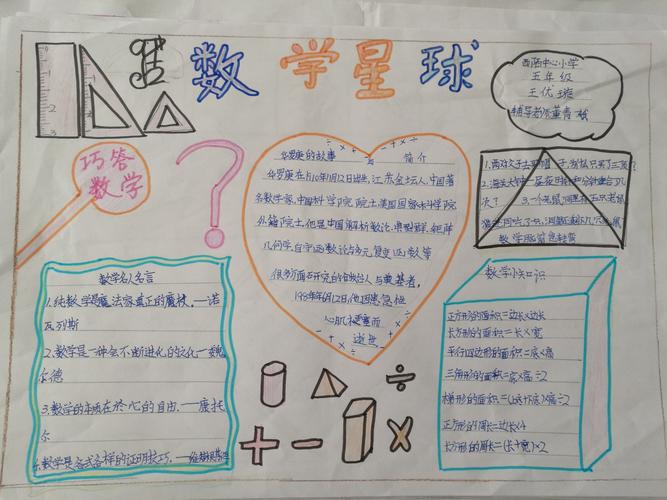 数学星球
西陌中心小学
五年级
王优璇
辅导老师董青
巧答
数学
?
华罗庚的故事 与 简介
华罗庚在1910年11月12日出生，江苏金坛人，中国著
名数学家，中国科学院院士，美国国家科学院
外籍院士，他是中国解析数论，典型群，矩阵
几何学，自守函数论与多元复变函数等
很多方面研究的创始人与奠基者，
1985年6月12日，他因患急性
心肌梗塞而
逝世
数学名人名言
1.纯数学是魔法家真正的魔杖。——诺
瓦列斯
2.数学是一种会不断进化的文化——魏
尔德
3.数学的本质在於心的自由。——康托
尔
4.数学是各式各样的证明技巧。——维特根斯坦
数学小知识
正方形的面积=边长×边长
长方形的面积=长×宽
平行四边形的面积=底×高
三角形的面积=底×高÷2
梯形的面积=(上底+下底)×高÷2
正方形的周长=边长×4
长方形的周长=(长+宽)×2